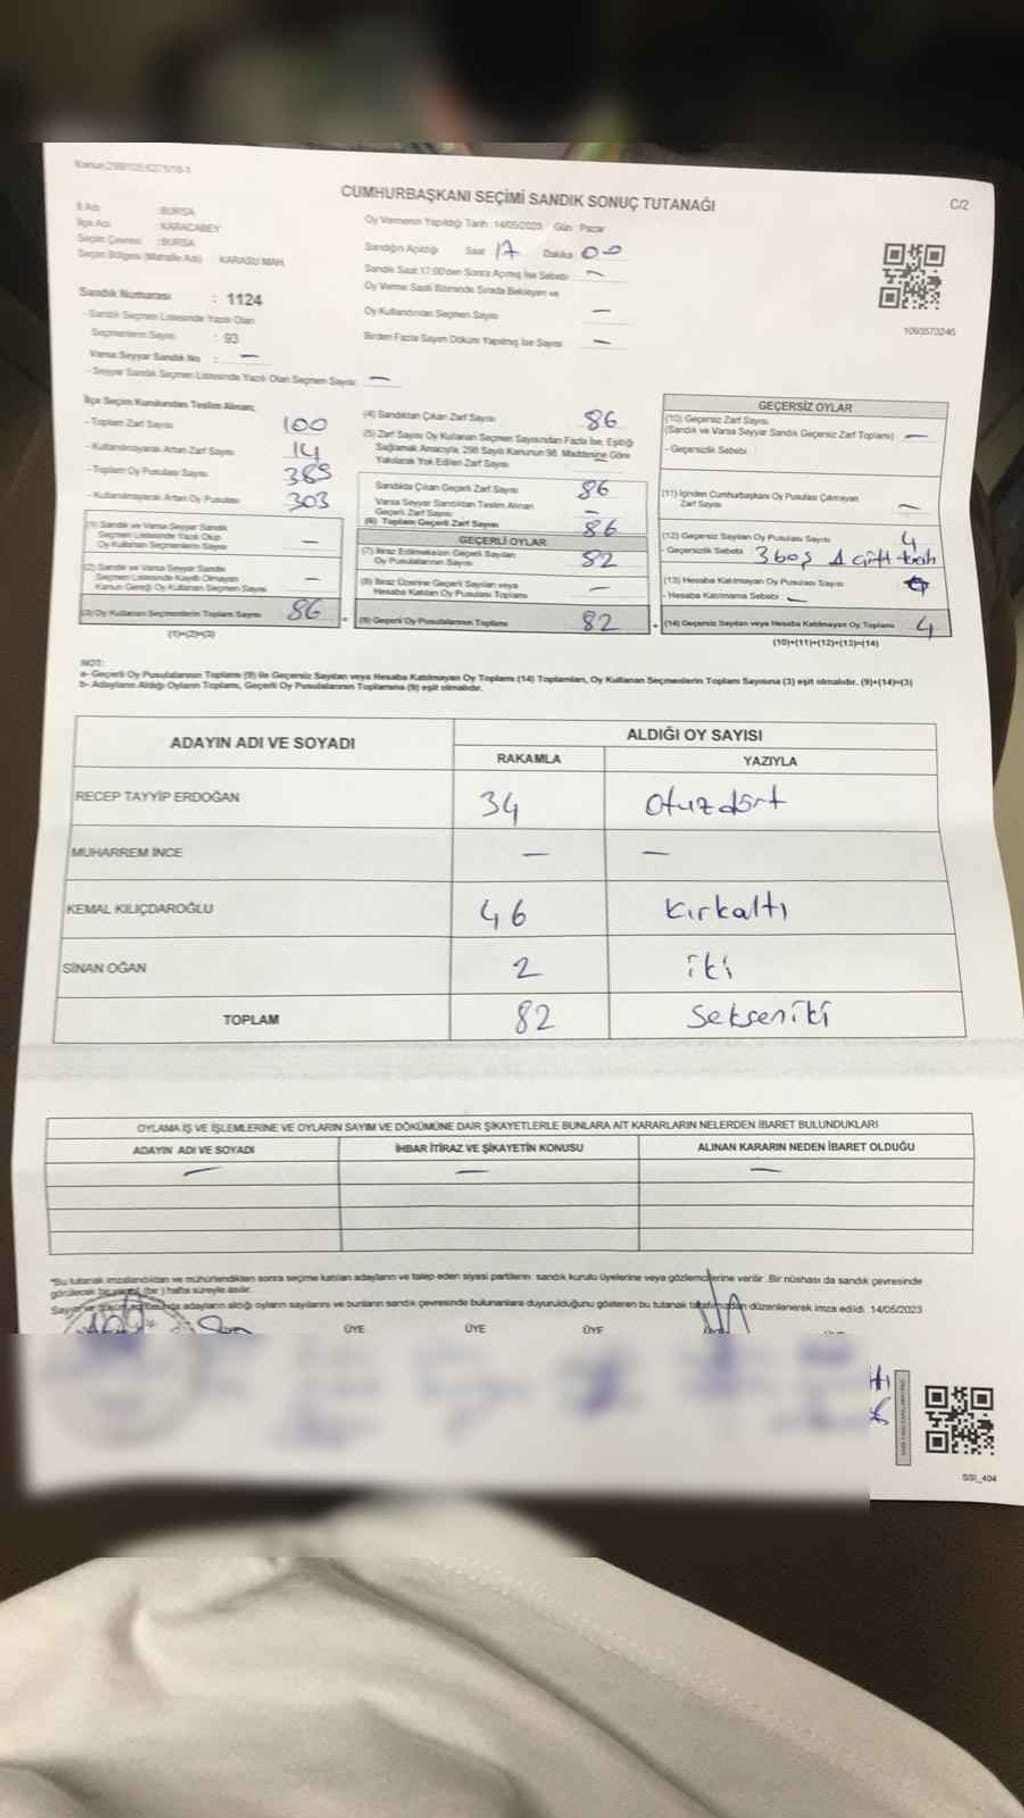 CUMHURBAŞKANI SEÇİMİ SANDIK SONUÇ TUTANAĞI
C/2
İl Adı : BURSA
İlçe Adı : KARACABEY
Seçim Çevresi : BURSA
Seçim Bölgesi (Mahalle Adı) : KARASU MAH.
Sandık Numarası : 1124
- Sandık Seçmen Listesinde Yazılı Olan
Seçmenlerin Sayısı : 93
Varsa Seyyar Sandık No : —
- Seyyar Sandık Seçmen Listesinde Yazılı Olan Seçmen Sayısı : —
Oy Vermenin Yapıldığı Tarih : 14/05/2023 Gün : Pazar
Sandığın Açıldığı Saat : 17 Dakika : 00
Sandık Saat 17:00'den Sonra Açılmış İse Sebebi : —
Oy Verme Saati Bitiminde Sırada Bekleyen ve
Oy Kullandırılan Seçmen Sayısı : —
Birden Fazla Sayım Döküm Yapılmış İse Sayısı : —
1093573246
İlçe Seçim Kurulundan Teslim Alınan;
- Toplam Zarf Sayısı 100
- Kullanılmayarak Artan Zarf Sayısı 14
- Toplam Oy Pusulası Sayısı 389
- Kullanılmayarak Artan Oy Pusulası 303
(1) Sandık ve Varsa Seyyar Sandık
Seçmen Listesinde Yazılı Olup
Oy Kullanan Seçmenlerin Sayısı —
(2) Sandık ve Varsa Seyyar Sandık
Seçmen Listesinde Kayıtlı Olmayan
Kanun Gereği Oy Kullanan Seçmen Sayısı —
(3) Oy Kullanan Seçmenlerin Toplam Sayısı 86
(1)+(2)=(3)
(4) Sandıktan Çıkan Zarf Sayısı 86
(5) Zarf Sayısı Oy Kullanan Seçmen Sayısından Fazla İse, Eşitliği
Sağlamak Amacıyla, 298 Sayılı Kanunun 98. Maddesine Göre
Yakılarak Yok Edilen Zarf Sayısı —
Sandıkta Çıkan Geçerli Zarf Sayısı 86
Varsa Seyyar Sandıktan Teslim Alınan
Geçerli Zarf Sayısı —
(6) Toplam Geçerli Zarf Sayısı 86
GEÇERLİ OYLAR
(7) İtiraz Edilmeksizin Geçerli Sayılan
Oy Pusulalarının Sayısı 82
(8) İtiraz Üzerine Geçerli Sayılan veya
Hesaba Katılan Oy Pusulası Toplamı —
(9) Geçerli Oy Pusulalarının Toplamı 82
GEÇERSİZ OYLAR
(10) Geçersiz Zarf Sayısı
(Sandık ve Varsa Seyyar Sandık Geçersiz Zarf Toplamı) —
- Geçersizlik Sebebi :
(11) İçinden Cumhurbaşkanı Oy Pusulası Çıkmayan
Zarf Sayısı —
(12) Geçersiz Sayılan Oy Pusulası Sayısı 4
- Geçersizlik Sebebi : 3 boş 1 çift
(13) Hesaba Katılmayan Oy Pusulası Sayısı
- Hesaba Katılmama Sebebi : —
(14) Geçersiz Sayılan veya Hesaba Katılmayan Oy Toplamı 4
(10)+(11)+(12)+(13)=(14)
NOT:
a- Geçerli Oy Pusulalarının Toplamı (9) ile Geçersiz Sayılan veya Hesaba Katılmayan Oy Toplamı (14) Toplamları, Oy Kullanan Seçmenlerin Toplam Sayısına (3) eşit olmalıdır. (9)+(14)=(3)
b- Adayların Aldığı Oyların Toplamı, Geçerli Oy Pusulalarının Toplamına (9) eşit olmalıdır.
ADAYIN ADI VE SOYADI ALDIĞI OY SAYISI
RAKAMLA YAZIYLA
RECEP TAYYİP ERDOĞAN 34 otuzdört
MUHARREM İNCE — —
KEMAL KILIÇDAROĞLU 46 kırkaltı
SİNAN OĞAN 2 iki
TOPLAM 82 Sekseniki
OYLAMA İŞ VE İŞLEMLERİNE VE OYLARIN SAYIM VE DÖKÜMÜNE DAİR ŞİKAYETLERLE BUNLARA AİT KARARLARIN NELERDEN İBARET BULUNDUKLARI
ADAYIN ADI VE SOYADI İHBAR İTİRAZ VE ŞİKAYETİN KONUSU ALINAN KARARIN NEDEN İBARET OLDUĞU
— — —
*Bu tutanak imzalandıktan ve mühürlendikten sonra seçime katılan adayların ve talep eden siyasi partilerin sandık kurulu üyelerine veya gözlemcilerine verilir. Bir nüshası da sandık çevresinde
görülecek bir yere (bir) hafta süreyle asılır.
adayların aldığı oyların sayılarını ve bunların sandık çevresinde bulunanlara duyurulduğunu gösteren bu tutanak düzenlenerek imza edildi. 14/05/2023
ÜYE ÜYE ÜYE
SSI_404